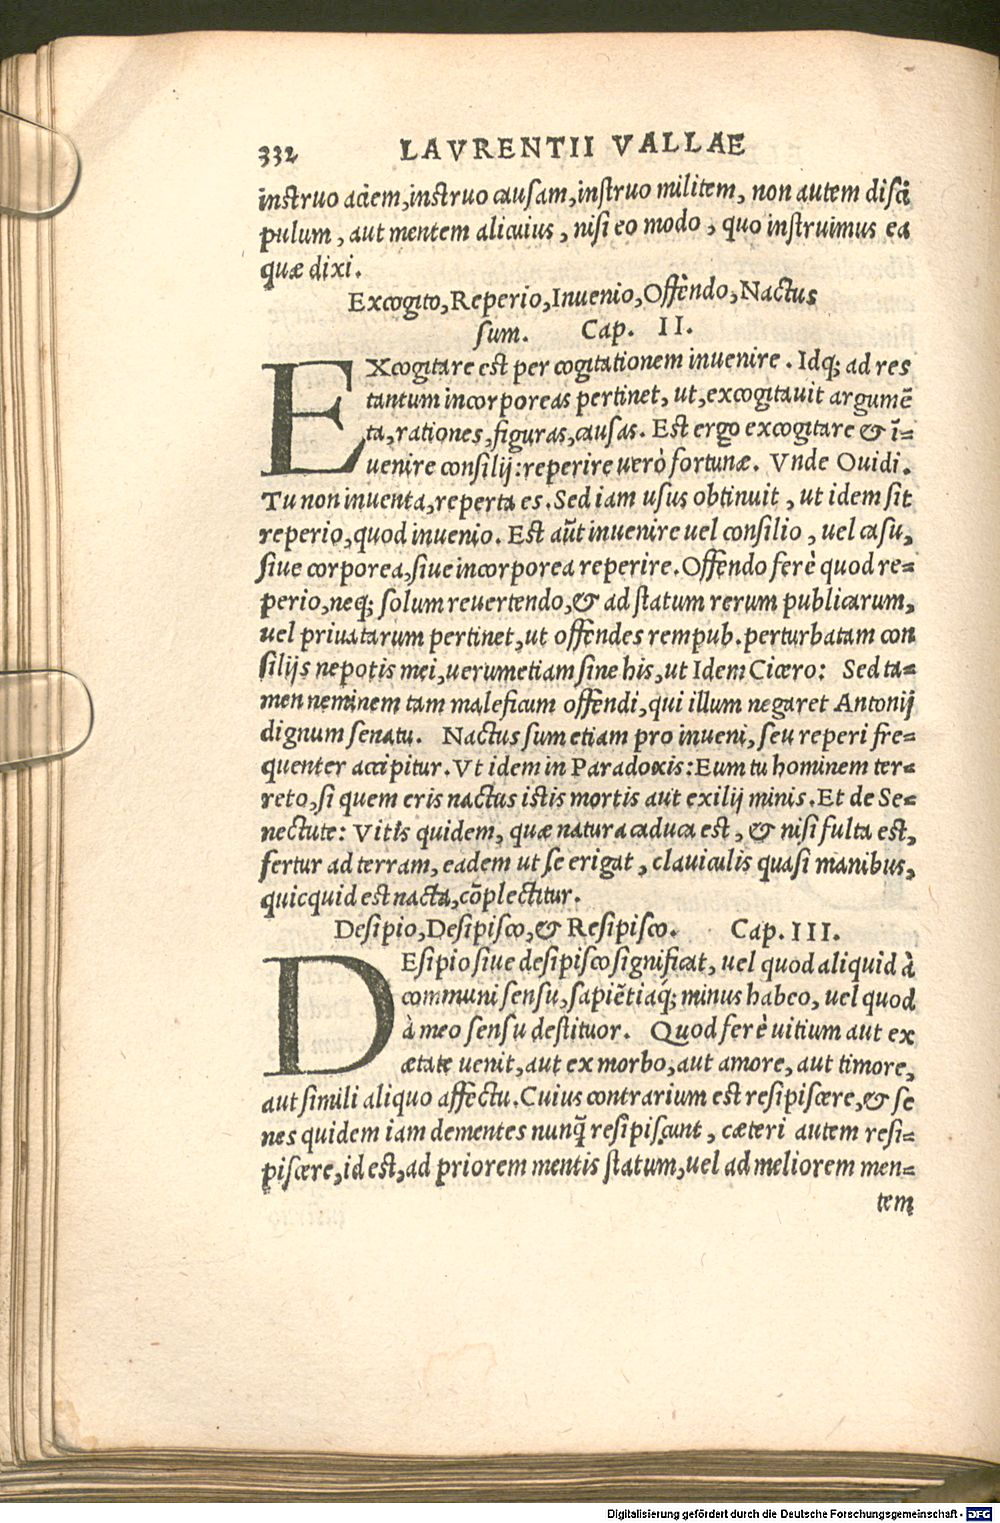 332 LAVRENTII VALLAE
instruo aciem, instruo causam, instruo militem, non autem disci
pulum, aut mentem alicuius, nisi eo modo, quo instruimus ea
quæ dixi.
Excogito, Reperio, Inuenio, Offendo, Nactus
sum. Cap. II.
EXcogitare est per cogitationem inuenire. Idq; ad res
tantum incorporeas pertinet, ut, excogitauit argumē
ta, rationes, figuras, causas. Est ergo excogitare & ī=
uenire consilij: reperire uerò fortunæ. Vnde Ouidi.
Tu non inuenta, reperta es. Sed iam usus obtinuit, ut idem sit
reperio, quod inuenio. Est aūt inuenire uel consilio, uel casu,
siue corporea, siue incorporea reperire. Offendo ferè quod re=
perio, neq; solum reuertendo, & ad statum rerum publicarum,
uel priuatarum pertinet, ut offendes rempub. perturbatam con
silijs nepotis mei, uerumetiam sine his, ut Idem Cicero: Sed ta=
men neminem tam maleficum offendi, qui illum negaret Antonij
dignum senatu. Nactus sum etiam pro inueni, seu reperi fre=
quenter accipitur. Vt idem in Paradoxis: Eum tu hominem ter=
reto, si quem eris nactus istis mortis aut exilij minis. Et de Se=
nectute: Vitis quidem, quæ natura caduca est, & nisi fulta est,
fertur ad terram, eadem ut se erigat, clauiculis quasi manibus,
quicquid est nacta, cōplectitur.
Desipio, Desipisco, & Resipisco. Cap. III.
DEsipio siue desipisco significat, uel quod aliquid à
communi sensu, sapiētiaq́; minus habeo, uel quod
à meo sensu destituor. Quod ferè uitium aut ex
ætate uenit, aut ex morbo, aut amore, aut timore,
aut simili aliquo affectu. Cuius contrarium est resipiscere, & se
nes quidem iam dementes nunq̄ resipiscunt, cæteri autem resi=
piscere, id est, ad priorem mentis statum, uel ad meliorem men=
tem
Digitalisierung gefördert durch die Deutsche Forschungsgemeinschaft - DFG